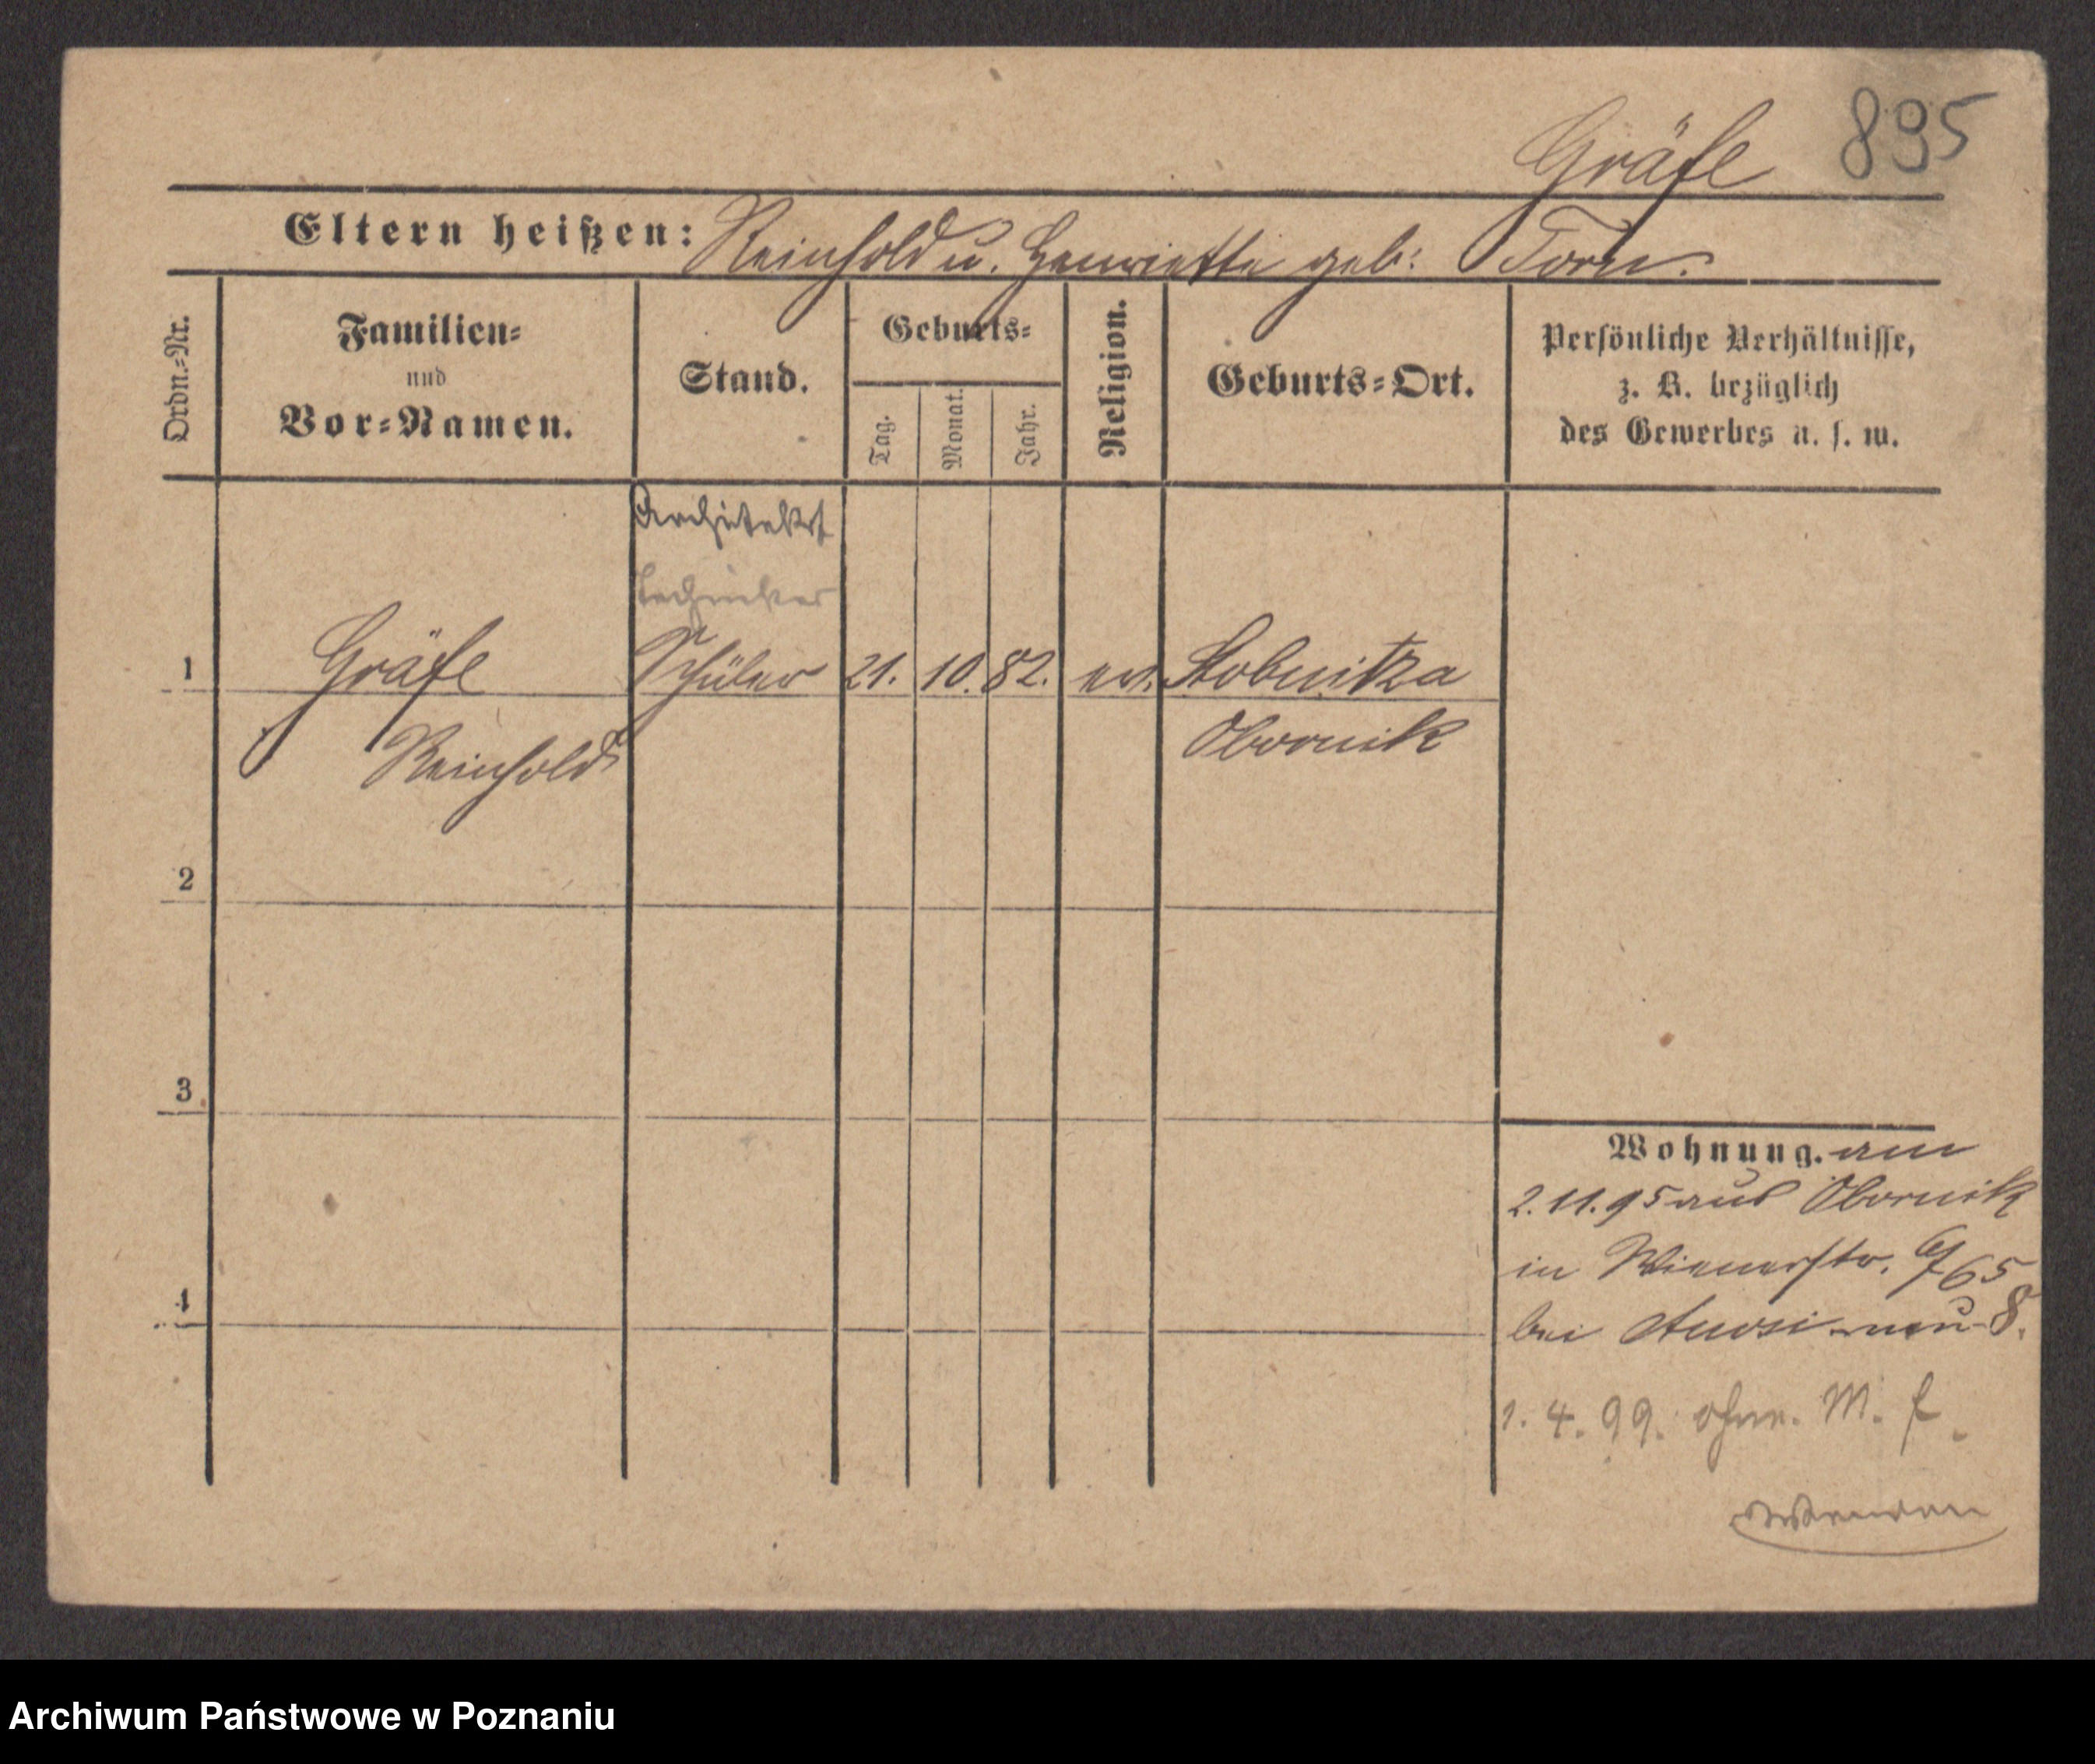 895
Gräfe
Eltern heißen: Reinhold u. Henriette geb: Torn.
Ordn.=Nr.
Familien=
und
Vor=Namen.
Stand.
Geburts=
Tag.
Monat.
Jahr.
Religion.
Geburts=Ort.
Persönliche Verhältnisse,
z. B. bezüglich
des Gewerbes u. s. w.
Architekt
Techniker
1 Gräfe Schüler 21. 10. 82. ev. Stobnitza
Reinhold Obornik
2
3
4
Wohnung. am
2.11.95 aus Obornik
in Wienerstr.
bei
1. 4. 99. ohne. M. f.